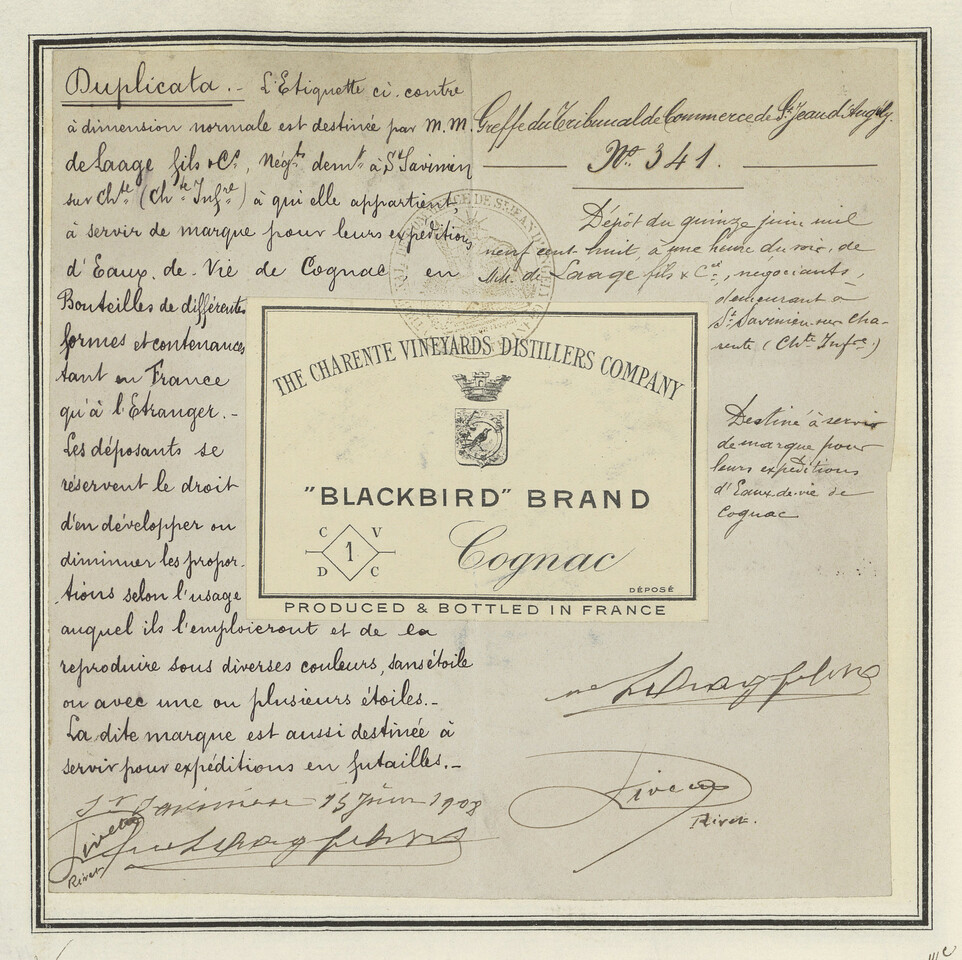 Duplicata.- L'Etiquette ci-contre
à dimension normale est destinée par M.M.
de Laage fils & Cie, Négts demt à St Savinien
sur Chte (Chte Infre) à qui elle appartient,
à servir de marque pour leurs expéditions
d'Eaux-de-Vie de Cognac en
Bouteilles de différentes
formes et contenances
tant en France
qu'à l'Etranger.-
Les déposants se
réservent le droit
d'en développer ou
diminuer les propor-
tions selon l'usage
auquel ils l'emploieront et de la
reproduire sous diverses couleurs, sans étoile
ou avec une ou plusieurs étoiles.-
La dite marque est aussi destinée à
servir pour expéditions en futailles.-
St Savinien 15 Juin 1908
Rivet
Greffe du Tribunal de Commerce de St Jean d'Angély.
No 341.
Dépôt du quinze juin mil
neuf cent huit, à une heure du soir, de
MM. de Laage fils & Cie, négociants,
demeurant à
St Savinien sur Cha-
rente (Chte Infre)
Destiné à servir
de marque pour
leurs expéditions
d'Eaux-de-vie de
Cognac
Rivet.
THE CHARENTE VINEYARDS DISTILLERS COMPANY
"BLACKBIRD" BRAND
C V
1
D C
Cognac
DÉPOSÉ
PRODUCED & BOTTLED IN FRANCE